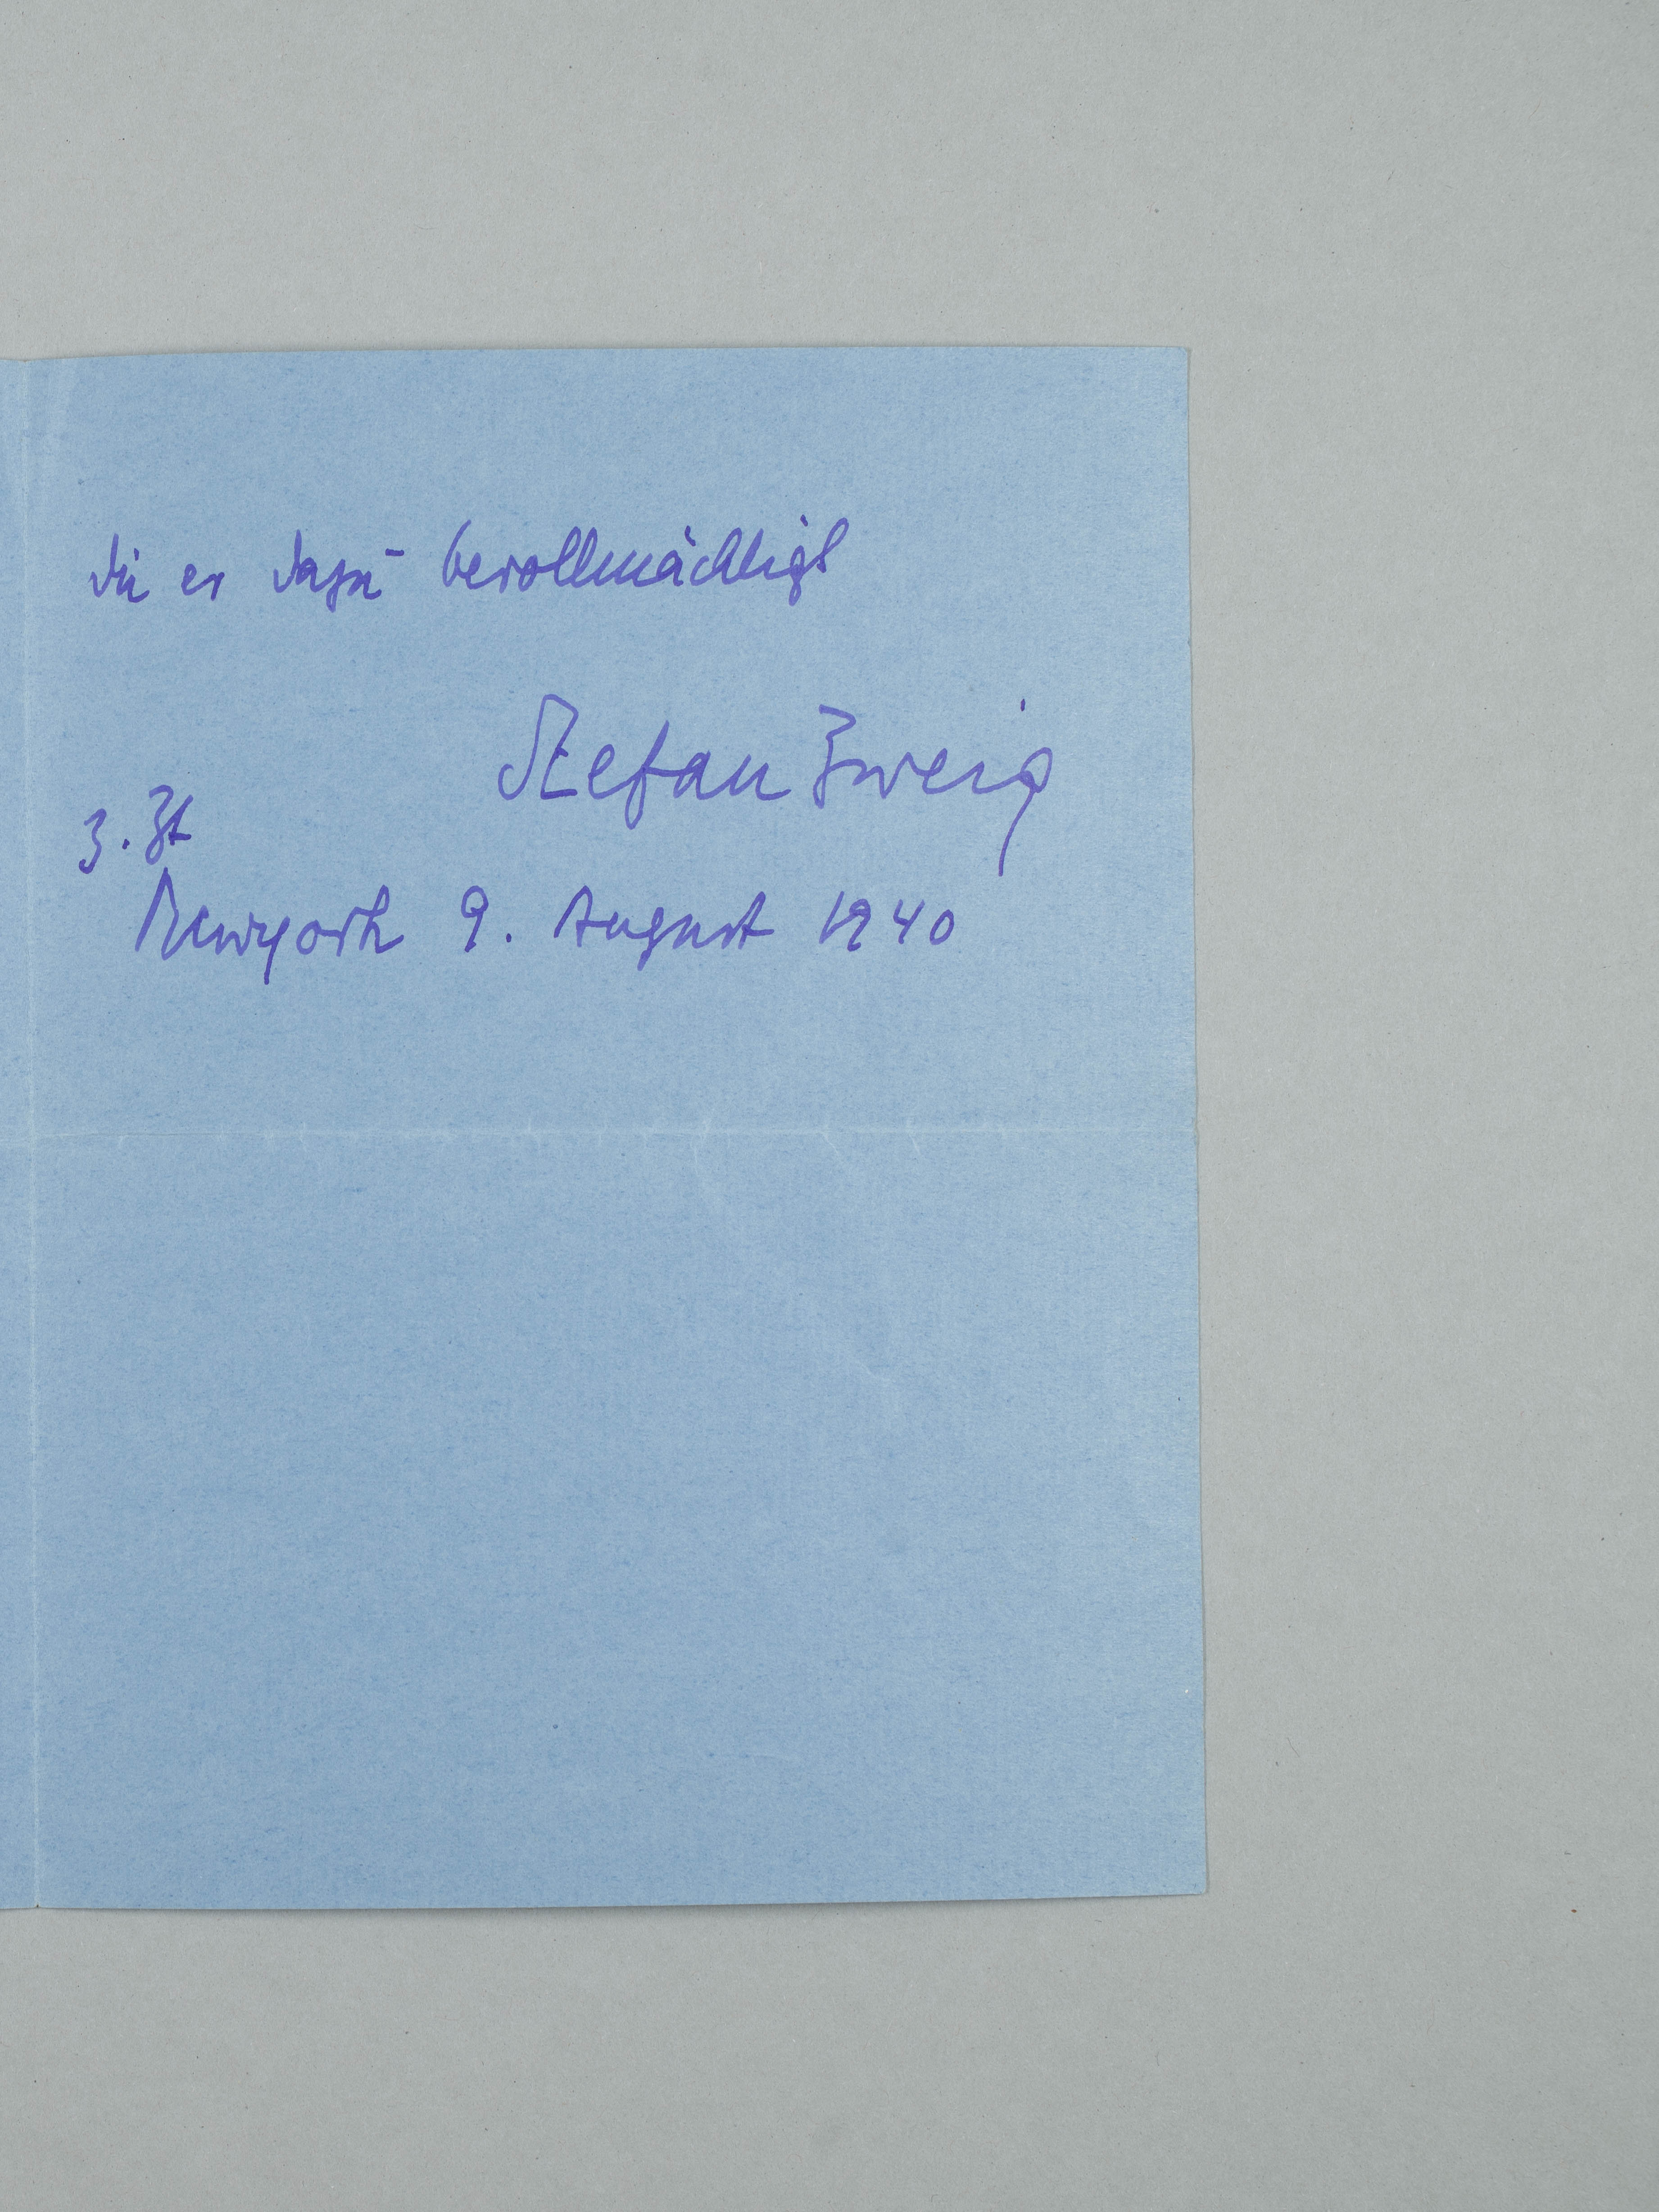 die er dazu bevollmächtigt
Stefan Zweig
z. Zt
Newyork 9. August 1940